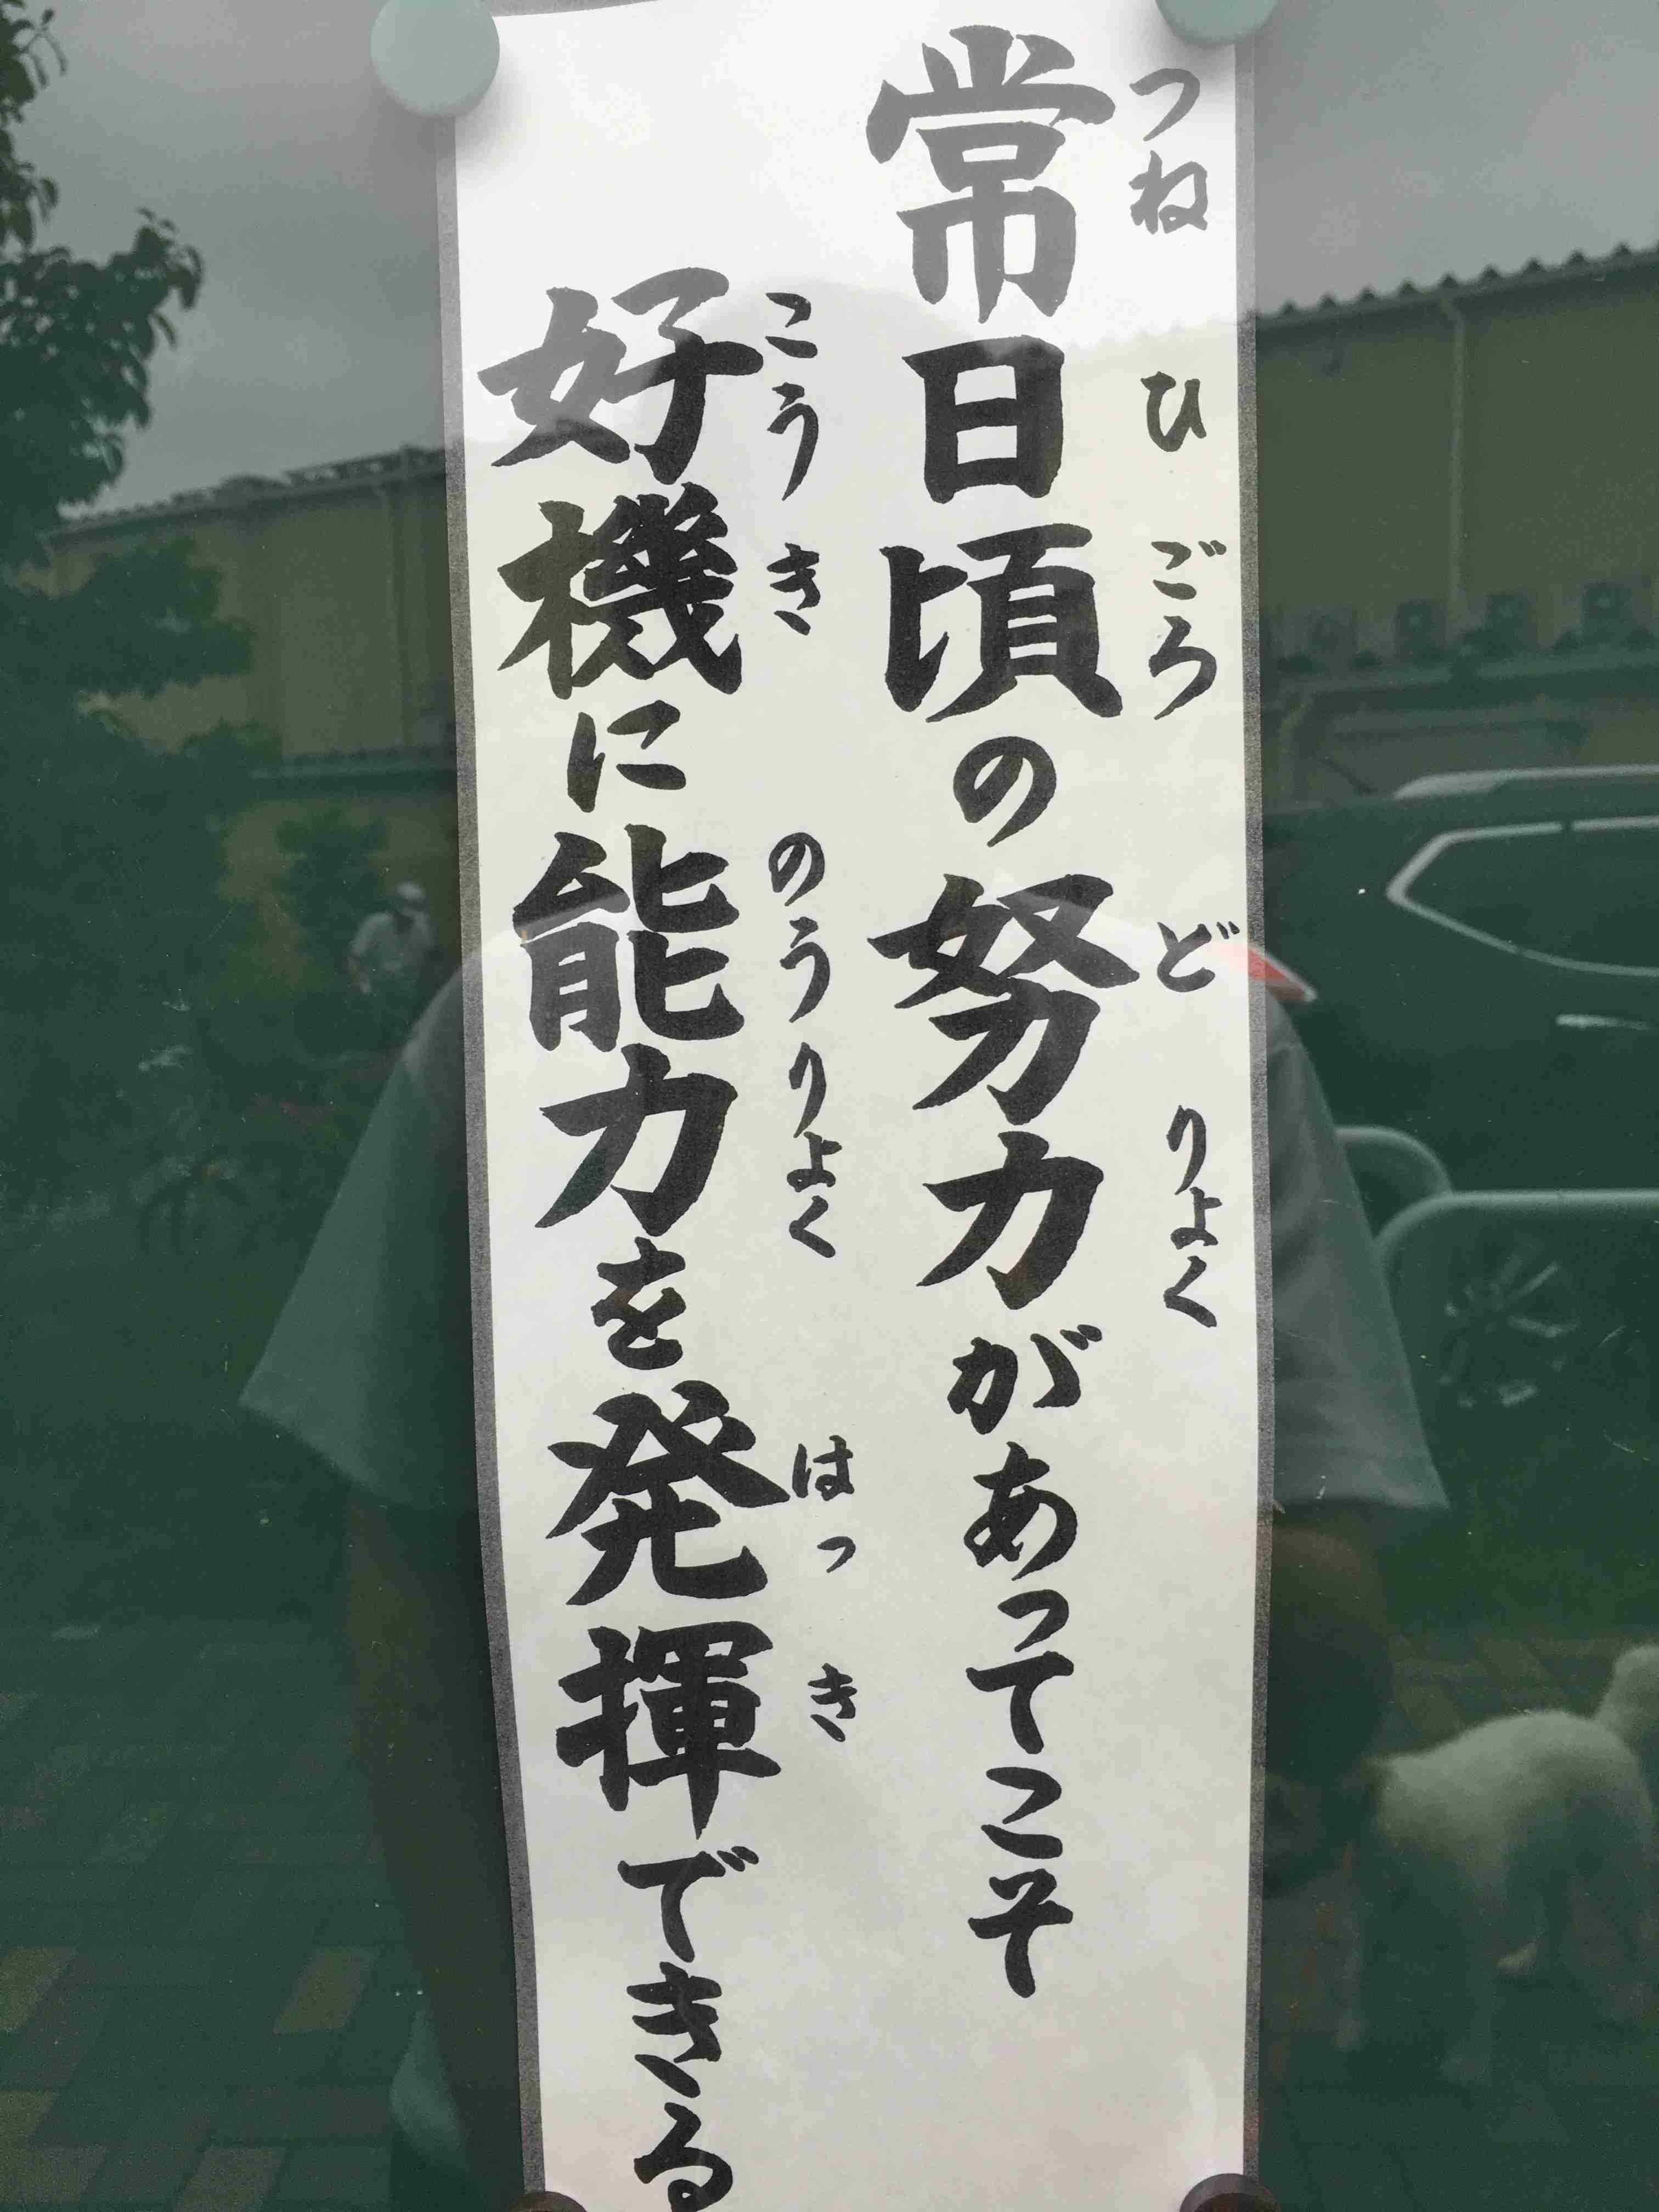 常日頃の努力があってこそ
つねひごろどりよく
好機に能力を発揮できる
こうきのうりよくはっき